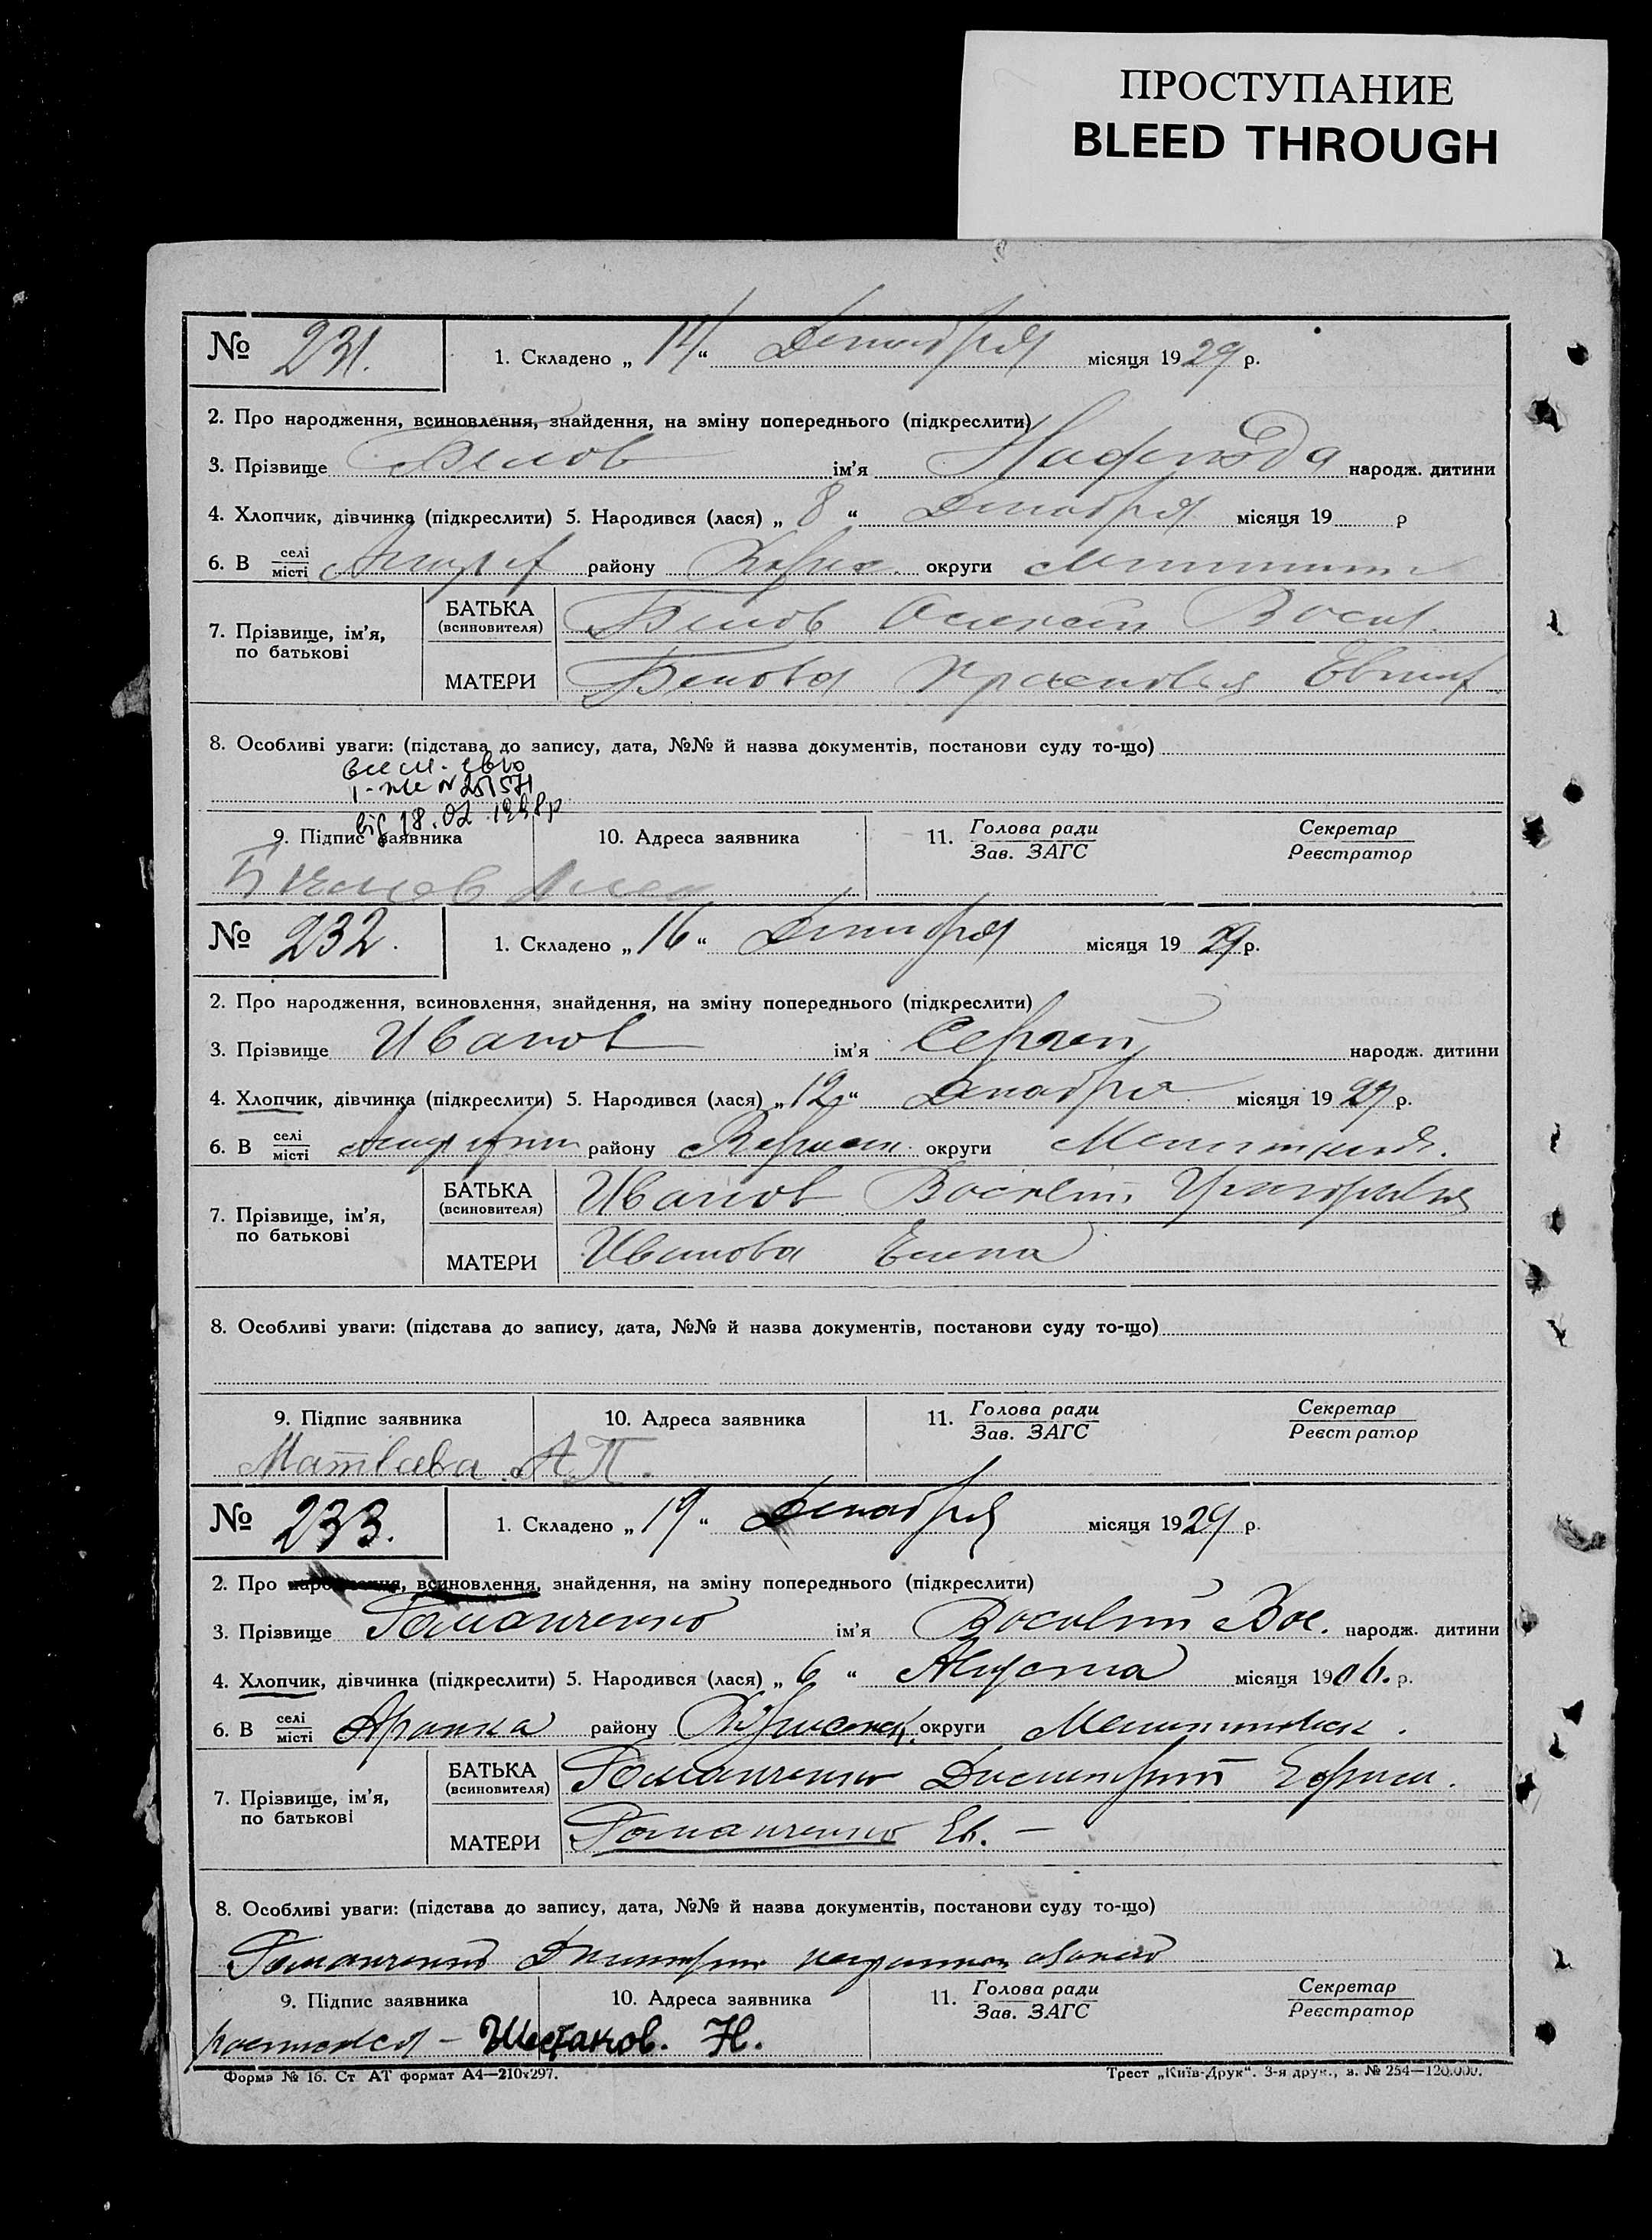 ПРОСТУПАНИЕ
BLEED THROUGH
№ 231. 1. Складено „14“ Декабря місяця 1929 р.
2. Про народження, всиновлення, знайдення, на зміну попереднього (підкреслити)
3. Прізвище Белов ім'я Надежда народж. дитини
4. Хлопчик, дівчинка (підкреслити) 5. Народився (лася) „8“ Декабря місяця 19 р
6. В селі/місті району округи
7. Прізвище, ім'я, по батькові
БАТЬКА (всиновителя) Белов Алексей Васил.
МАТЕРИ Белова Прасковья
8. Особливі уваги: (підстава до запису, дата, №№ й назва документів, постанови суду то-що)
від 18.02.1998р
9. Підпис заявника 10. Адреса заявника 11. Голова ради/Зав. ЗАГС Секретар/Реєстратор
№ 232. 1. Складено „16“ Декабря місяця 1929 р.
2. Про народження, всиновлення, знайдення, на зміну попереднього (підкреслити)
3. Прізвище Иванов ім'я Сергей народж. дитини
4. Хлопчик, дівчинка (підкреслити) 5. Народився (лася) „12“ Декабря місяця 1929 р.
6. В селі/місті району округи
7. Прізвище, ім'я, по батькові
БАТЬКА (всиновителя) Иванов Василий
МАТЕРИ Иванова Елена
8. Особливі уваги: (підстава до запису, дата, №№ й назва документів, постанови суду то-що)
9. Підпис заявника 10. Адреса заявника 11. Голова ради/Зав. ЗАГС Секретар/Реєстратор
Матвеева А.П.
№ 233. 1. Складено „19“ Декабря місяця 1929 р.
2. Про народження, всиновлення, знайдення, на зміну попереднього (підкреслити)
3. Прізвище Романченко ім'я Василий Вас. народж. дитини
4. Хлопчик, дівчинка (підкреслити) 5. Народився (лася) „6“ Августа місяця 1906. р.
6. В селі/місті району округи
7. Прізвище, ім'я, по батькові
БАТЬКА (всиновителя) Романченко Дмитрий Ефрим.
МАТЕРИ Романченко Ев. –
8. Особливі уваги: (підстава до запису, дата, №№ й назва документів, постанови суду то-що)
Романченко Дмитрий
9. Підпис заявника 10. Адреса заявника 11. Голова ради/Зав. ЗАГС Секретар/Реєстратор
Шестаков. Н.
Форма № 16. Ст. АТ формат А4—210х297. Трест „Київ-Друк“. 3-я друк., з. № 254—120.000.